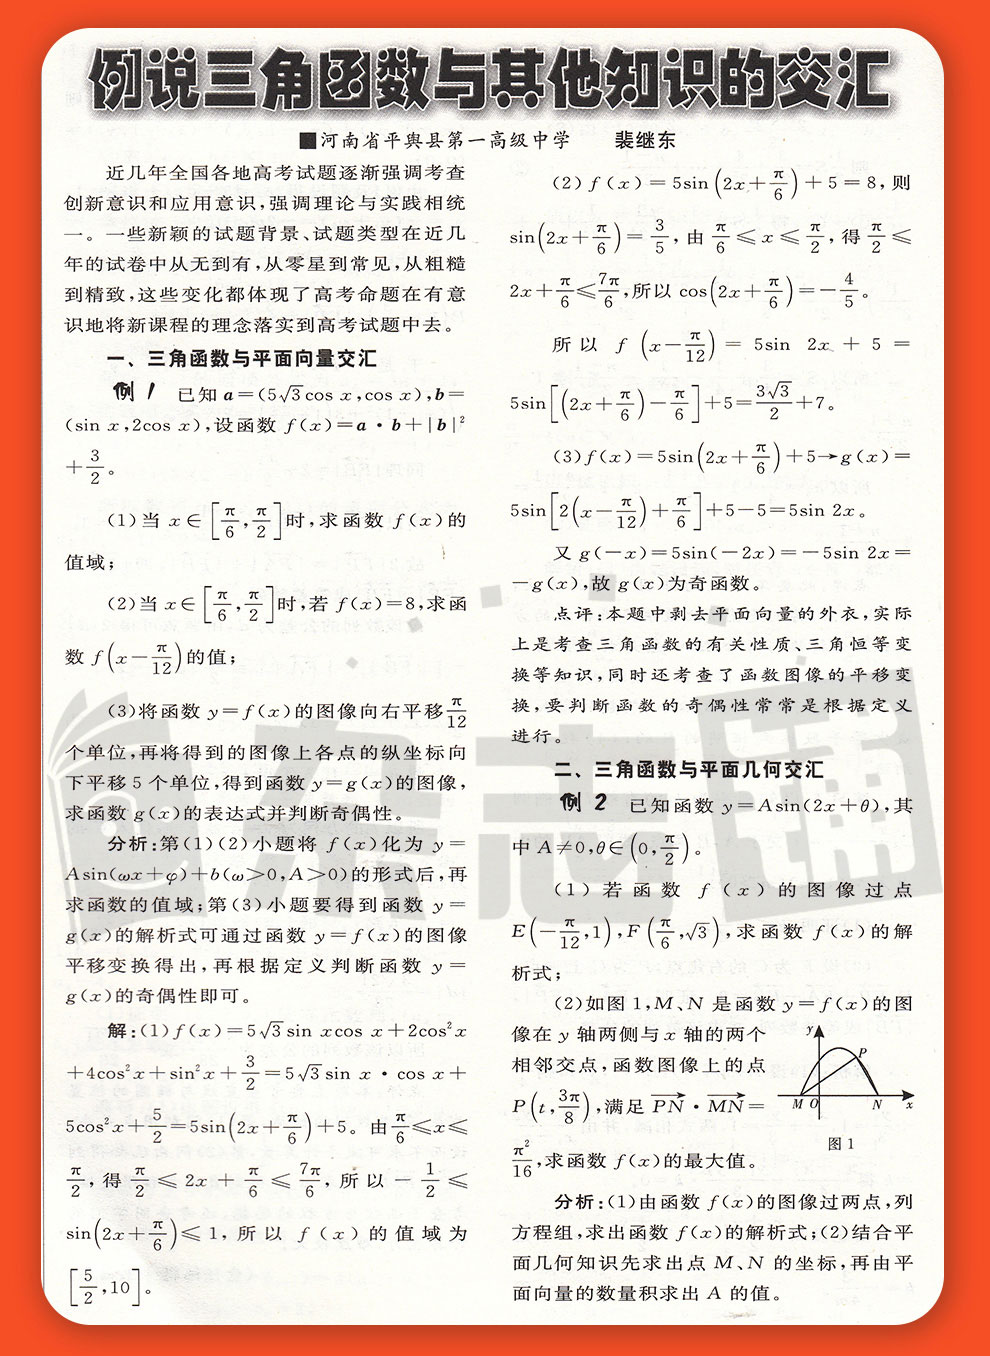 例说三角函数与其他知识的交汇
■河南省平舆县第一高级中学 裴继东
近几年全国各地高考试题逐渐强调考查
创新意识和应用意识,强调理论与实践相统
一。一些新颖的试题背景、试题类型在近几
年的试卷中从无到有,从零星到常见,从粗糙
到精致,这些变化都体现了高考命题在有意
识地将新课程的理念落实到高考试题中去。
一、三角函数与平面向量交汇
例1 已知 a=(5√3cos x,cos x),b=
(sin x,2cos x),设函数 f(x)=a·b+|b|²
+3/2。
(1)当 x∈[π/6,π/2]时,求函数 f(x)的
值域;
(2)当 x∈[π/6,π/2]时,若 f(x)=8,求函
数 f(x-π/12)的值;
(3)将函数 y=f(x)的图像向右平移π/12
个单位,再将得到的图像上各点的纵坐标向
下平移 5 个单位,得到函数 y=g(x)的图像,
求函数 g(x)的表达式并判断奇偶性。
分析:第(1)(2)小题将 f(x)化为 y=
Asin(ωx+φ)+b(ω>0,A>0)的形式后,再
求函数的值域;第(3)小题要得到函数 y=
g(x)的解析式可通过函数 y=f(x)的图像
平移变换得出,再根据定义判断函数 y=
g(x)的奇偶性即可。
解:(1)f(x)=5√3sin xcos x+2cos²x
+4cos²x+sin²x+3/2=5√3sin x·cos x+
5cos²x+5/2=5sin(2x+π/6)+5。由π/6≤x≤
π/2,得π/2≤2x+π/6≤7π/6,所以-1/2≤
sin(2x+π/6)≤1,所以 f(x)的值域为
[5/2,10]。
(2)f(x)=5sin(2x+π/6)+5=8,则
sin(2x+π/6)=3/5,由π/6≤x≤π/2,得π/2≤
2x+π/6≤7π/6,所以 cos(2x+π/6)=-4/5。
所以 f(x-π/12)=5sin 2x+5=
5sin[(2x+π/6)-π/6]+5=3√3/2+7。
(3)f(x)=5sin(2x+π/6)+5→g(x)=
5sin[2(x-π/12)+π/6]+5-5=5sin 2x。
又 g(-x)=5sin(-2x)=-5sin 2x=
-g(x),故 g(x)为奇函数。
点评:本题中剥去平面向量的外衣,实际
上是考查三角函数的有关性质、三角恒等变
换等知识,同时还考查了函数图像的平移变
换,要判断函数的奇偶性常常是根据定义
进行。
二、三角函数与平面几何交汇
例2 已知函数 y=Asin(2x+θ),其
中 A≠0,θ∈(0,π/2)。
(1)若函数 f(x)的图像过点
E(-π/12,1),F(π/6,√3),求函数 f(x)的解
析式;
(2)如图 1,M、N 是函数 y=f(x)的图
像在 y 轴两侧与 x 轴的两个
相邻交点,函数图像上的点
P(t,3π/8),满足 PN·MN=
π²/16,求函数 f(x)的最大值。
y
P
M O N x
图 1
分析:(1)由函数 f(x)的图像过两点,列
方程组,求出函数 f(x)的解析式;(2)结合平
面几何知识先求出点 M、N 的坐标,再由平
面向量的数量积求出 A 的值。
杂志铺